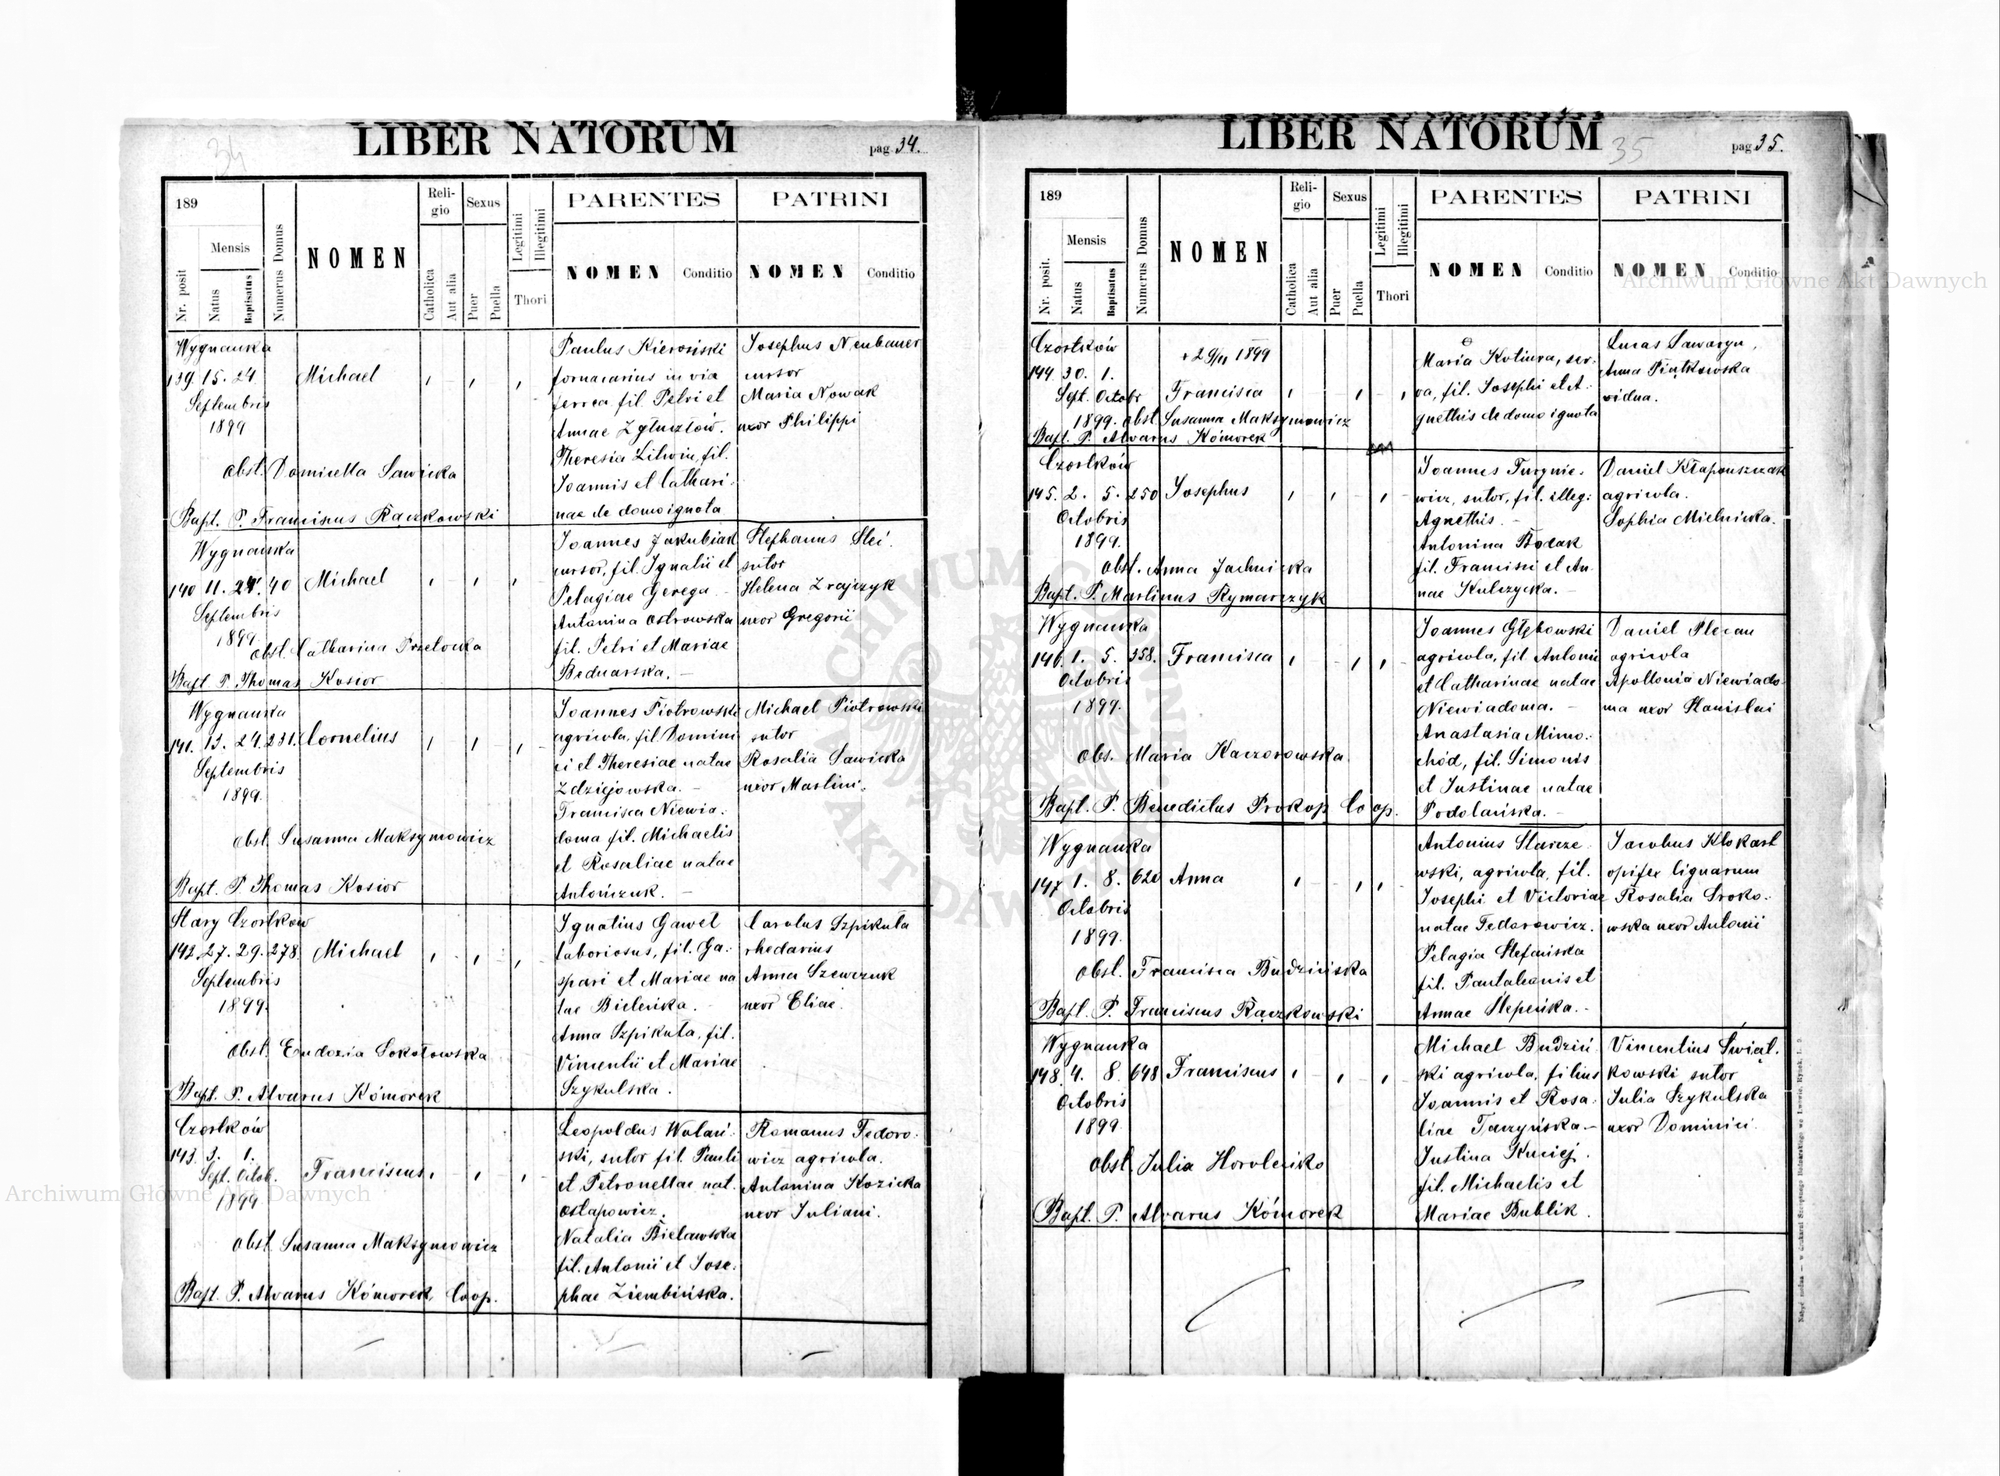 34
LIBER NATORUM
pag. 34.
189
Mensis
Nr. posit
Natus
Baptisatus
Numerus Domus
NOMEN
Reli-
gio
Catholica
Aut alia
Sexus
Puer
Puella
Legitimi
Illegitimi
Thori
PARENTES
NOMEN
Conditio
PATRINI
NOMEN
Conditio
Wygnanka
139. 15. 24.
Septembris
1899
Michael
obst. Domicella Sawicka
Bapt. P. Franciscus Raczkowski
Paulus Kierosiski
fornacarius in via
ferrea fil. Petri et
Annae
Theresia Litwin, fil.
Joannis et Cathari-
nae de domo ignota
Josephus Neubauer
cursor
Maria Nowak
uxor Philippi
Wygnanka
140 11. 24. 40 Michael
Septembris
1899
obst. Catharina Przelocka
Bapt P. Thomas Kosior
Joannes Jakubiak
cursor, fil. Ignatii et
Pelagiae Gerega.
Antonina Ostrowska
fil. Petri et Mariae
Bednarska. -
Stephanus Slei.
sutor
Helena Zrajczyk
uxor Gregorii
Wygnanka
141. 13. 24. 231. Cornelius
Septembris
1899.
obst. Susanna Maksymowicz
Bapt. P. Thomas Kosior
Joannes Piotrowski
agricola, fil. Domini
ci et Theresiae natae
Zdziejowska. -
Francisca Niewia-
doma fil. Michaelis
et Rosaliae natae
Antończuk. -
Michael Piotrowski
sutor
Rosalia Sawicka
uxor Martini.
Stary Czortków
142. 27. 29. 278. Michael
Septembris
1899.
obst. Eudoxia Sokołowska
Bapt. P. Alvarus Kómorek
Ignatius Gaweł
laboriosus, fil. Ga-
spari et Mariae na
tae Bieleńka. -
Anna Szpikuła, fil.
Vincentii et Mariae
Szykulska.
Carolus Szpikuła
rhedarius
Anna Szewczuk
uxor Eliae.
Czortków
143. 3. 1.
Sept. Octob.
1899
Franciscus
obst. Susanna Maksymowicz
Bapt. P. Alvarus Kómorek Coop.
Leopoldus Wolań-
ski, sutor fil. Pauli
et Petronellae nat.
Ostapowicz.
Natalia Bielawska
fil. Antonii et Jose-
phae Ziembińska.
Romanus Fedoro-
wicz agricola.
Antonina Kozicka
uxor Juliani.
LIBER NATORUM
35
pag 35.
189
Mensis
Nr. posit.
Natus
Baptisatus
Numerus Domus
NOMEN
Reli-
gio
Catholica
Aut alia
Sexus
Puer
Puella
Legitimi
Illegitimi
Thori
PARENTES
NOMEN
Conditio
PATRINI
NOMEN
Conditio
Czortków
144. 30. 1.
Sept. Octobr
1899. obst. Susanna Maksymowicz
+ 29/11 1899
Francisca
Bapt. P. Alvarus Kómorek
Maria Kotiura, ser-
va, fil. Josephi et A-
gnethis de domo ignota
Lucas Sawaryn,
Anna Piątkowska
vidua.
Czortków
145. 2. 5. 250 Josephus
Octobris
1899.
obst. Anna Jachnicka
Bapt. P. Martinus Rymarczyk
Joannes Turynie-
wicz, sutor, fil. illeg.
Agnethis. -
Antonina Bocak
fil. Francisci et An-
nae Kulczycka. -
Daniel Kłapouszczak
agricola.
Sophia Mielnicka.
Wygnanka
146. 1. 5. 358. Francisca
Octobris
1899.
obs. Maria Kaczorowska
Bapt. P. Benedictus Prokop Coop.
Joannes Głębowski
agricola, fil. Antonii
et Catharinae natae
Niewiadoma. -
Anastasia Mimo-
chód, fil. Simonis
et Justinae natae
Podolańska. -
Daniel Plecan
agricola
Apollonia Niewiado-
ma uxor Stanislai
Wygnanka
147 1. 8. 620 Anna
Octobris
1899.
obst. Francisca Budzińska
Bapt. P. Franciscus Raczkowski
Antonius Starze-
wski, agricola, fil.
Josephi et Victoriae
natae Fedorowicz.
Pelagia Stefańska
fil. Pantaleonis et
Annae Stepeńka. -
Jacobus Klokart
opifex lignarum
Rosalia Sroko-
wska uxor Antonii
Wygnanka
148. 4. 8. 648 Franciscus
Octobris
1899.
obst. Julia Horoleńko
Bapt. P. Alvarus Kómorek
Michael Budziń-
ski agricola, filius
Joannis et Rosa-
liae Taczyńska. -
Justina Kuciej.
fil. Michaelis et
Mariae Bublik.
Vincentius Świąt-
kowski sutor
Julia Szykulska
uxor Dominici.
Archiwum Główne Akt Dawnych
Archiwum Główne Akt Dawnych
ARCHIWUM GŁÓWNE AKT DAWNYCH